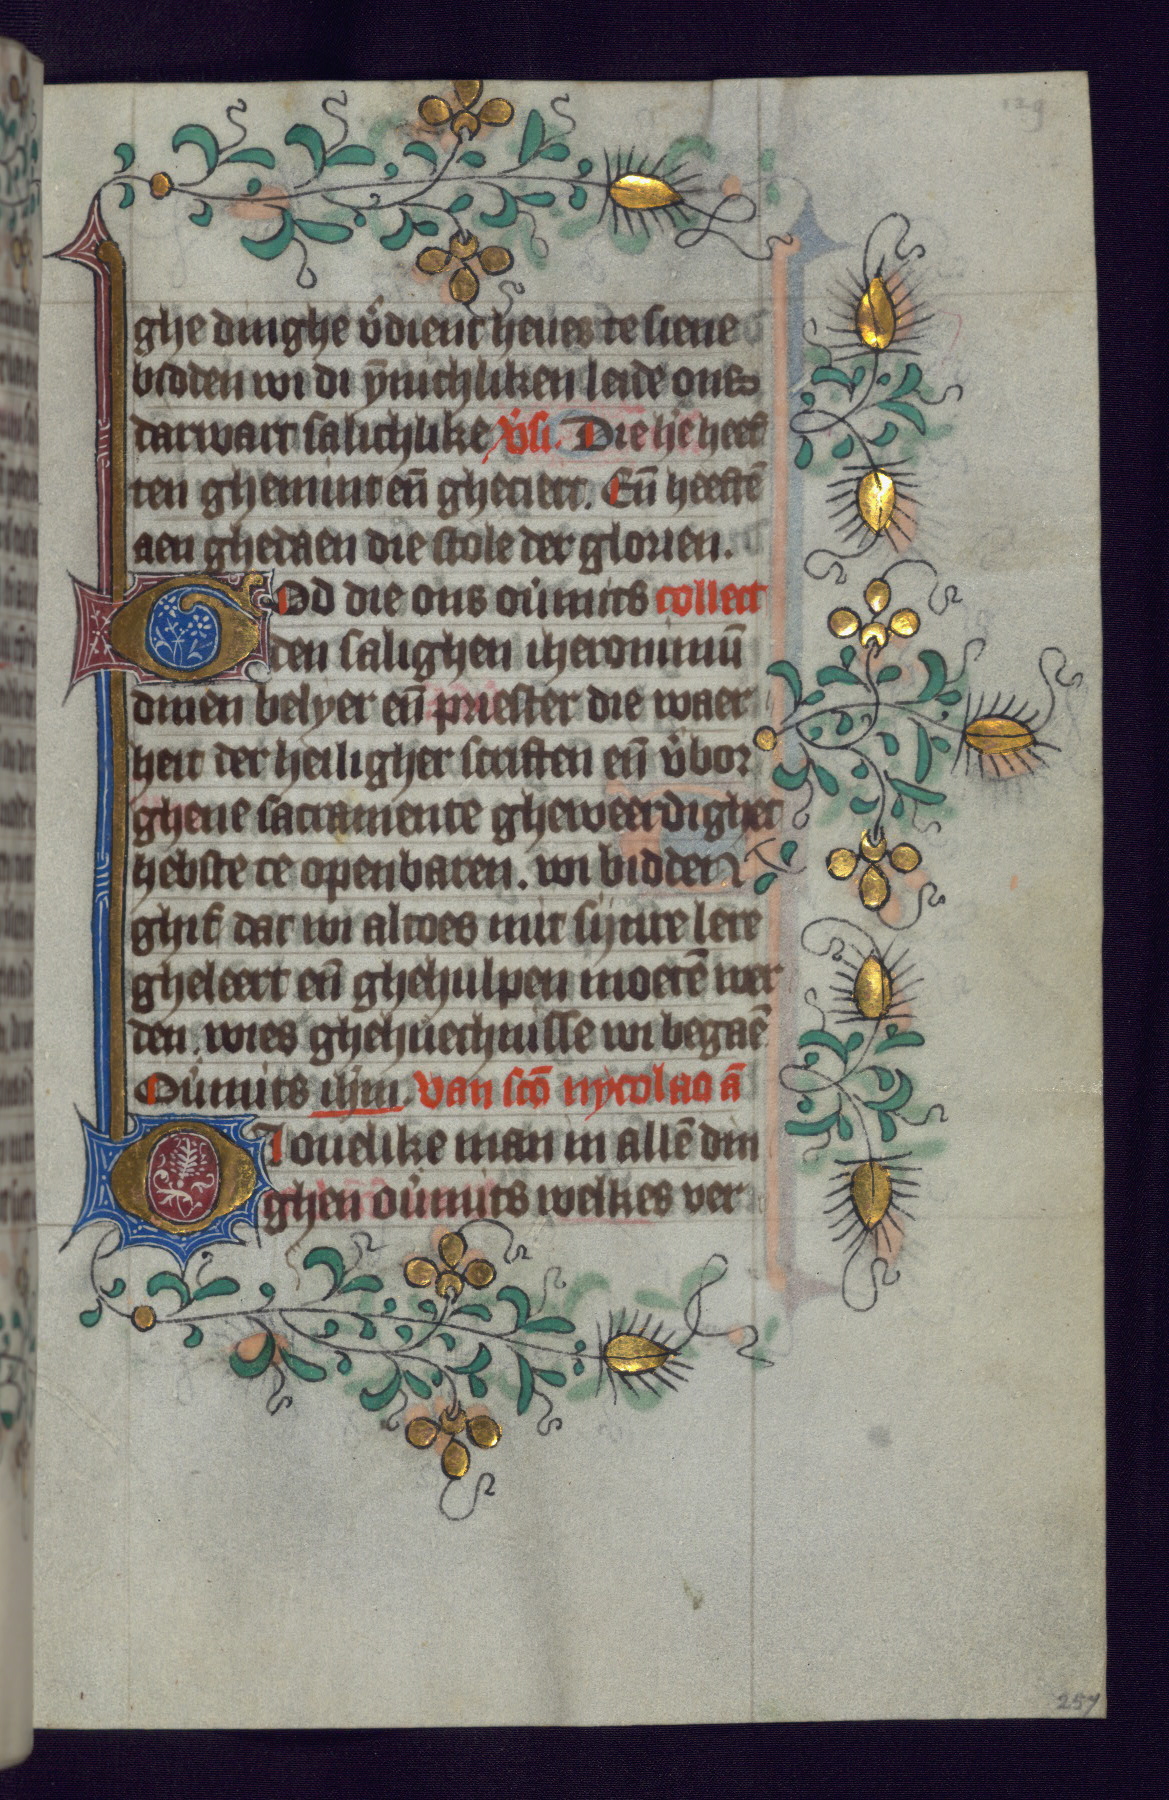 129
ghe dinghe v̊dient heues te siene
bidden wi di ȳnichliken leide ons
darwart salichlike v̊si. Die he̅ heeft
ten ghemint en̄ ghetiert. En̄ heeftē
aen ghedaen die stole der glorien.
God die ons oůmits collect
den salighen iheronimū
dinen belyer en̄ priester die waer
heit der heiligher scriften en̄ v̊bor
ghene sacramente gheweerdighet
hebste te openbaren. wi bidden
ghif dat wi altoes mit sijnre lere
gheleert en̄ ghehulpen moetē wer
den. wies ghehuechnisse wi begaē
Oůmits ihm̄. van scō nycolao ā
O Iouelike man in allē din
ghen oůmits welkes ver
257